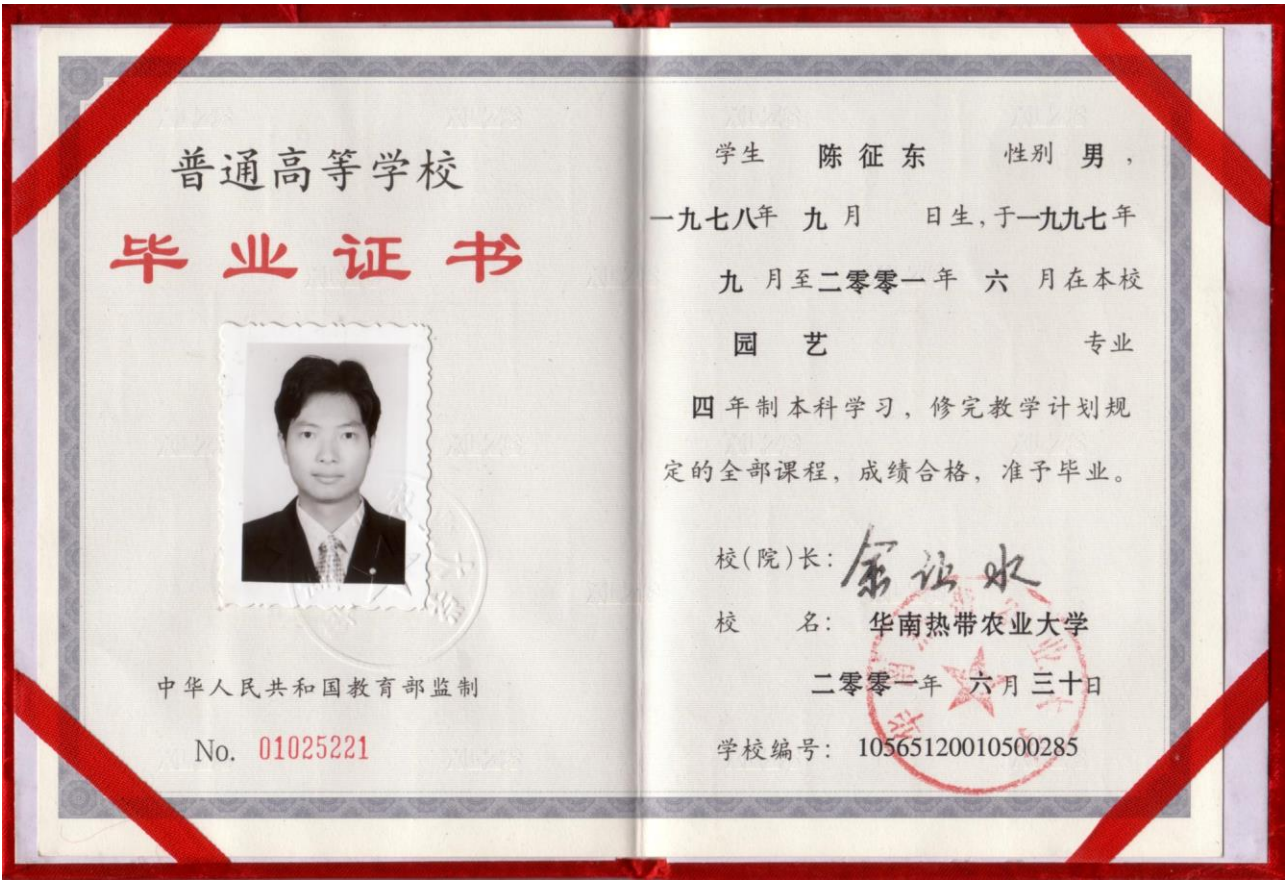 普通高等学校
毕业证书
中华人民共和国教育部监制
No. 01025221
学生 陈征东 性别 男，
一九七八年 九月 日生，于一九九七年
九 月至二零零一年 六 月在本校
园 艺 专业
四年制本科学习，修完教学计划规
定的全部课程，成绩合格，准予毕业。
校(院)长：余让水
校 名：华南热带农业大学
二零零一年 六月三十日
学校编号：10565120010500285